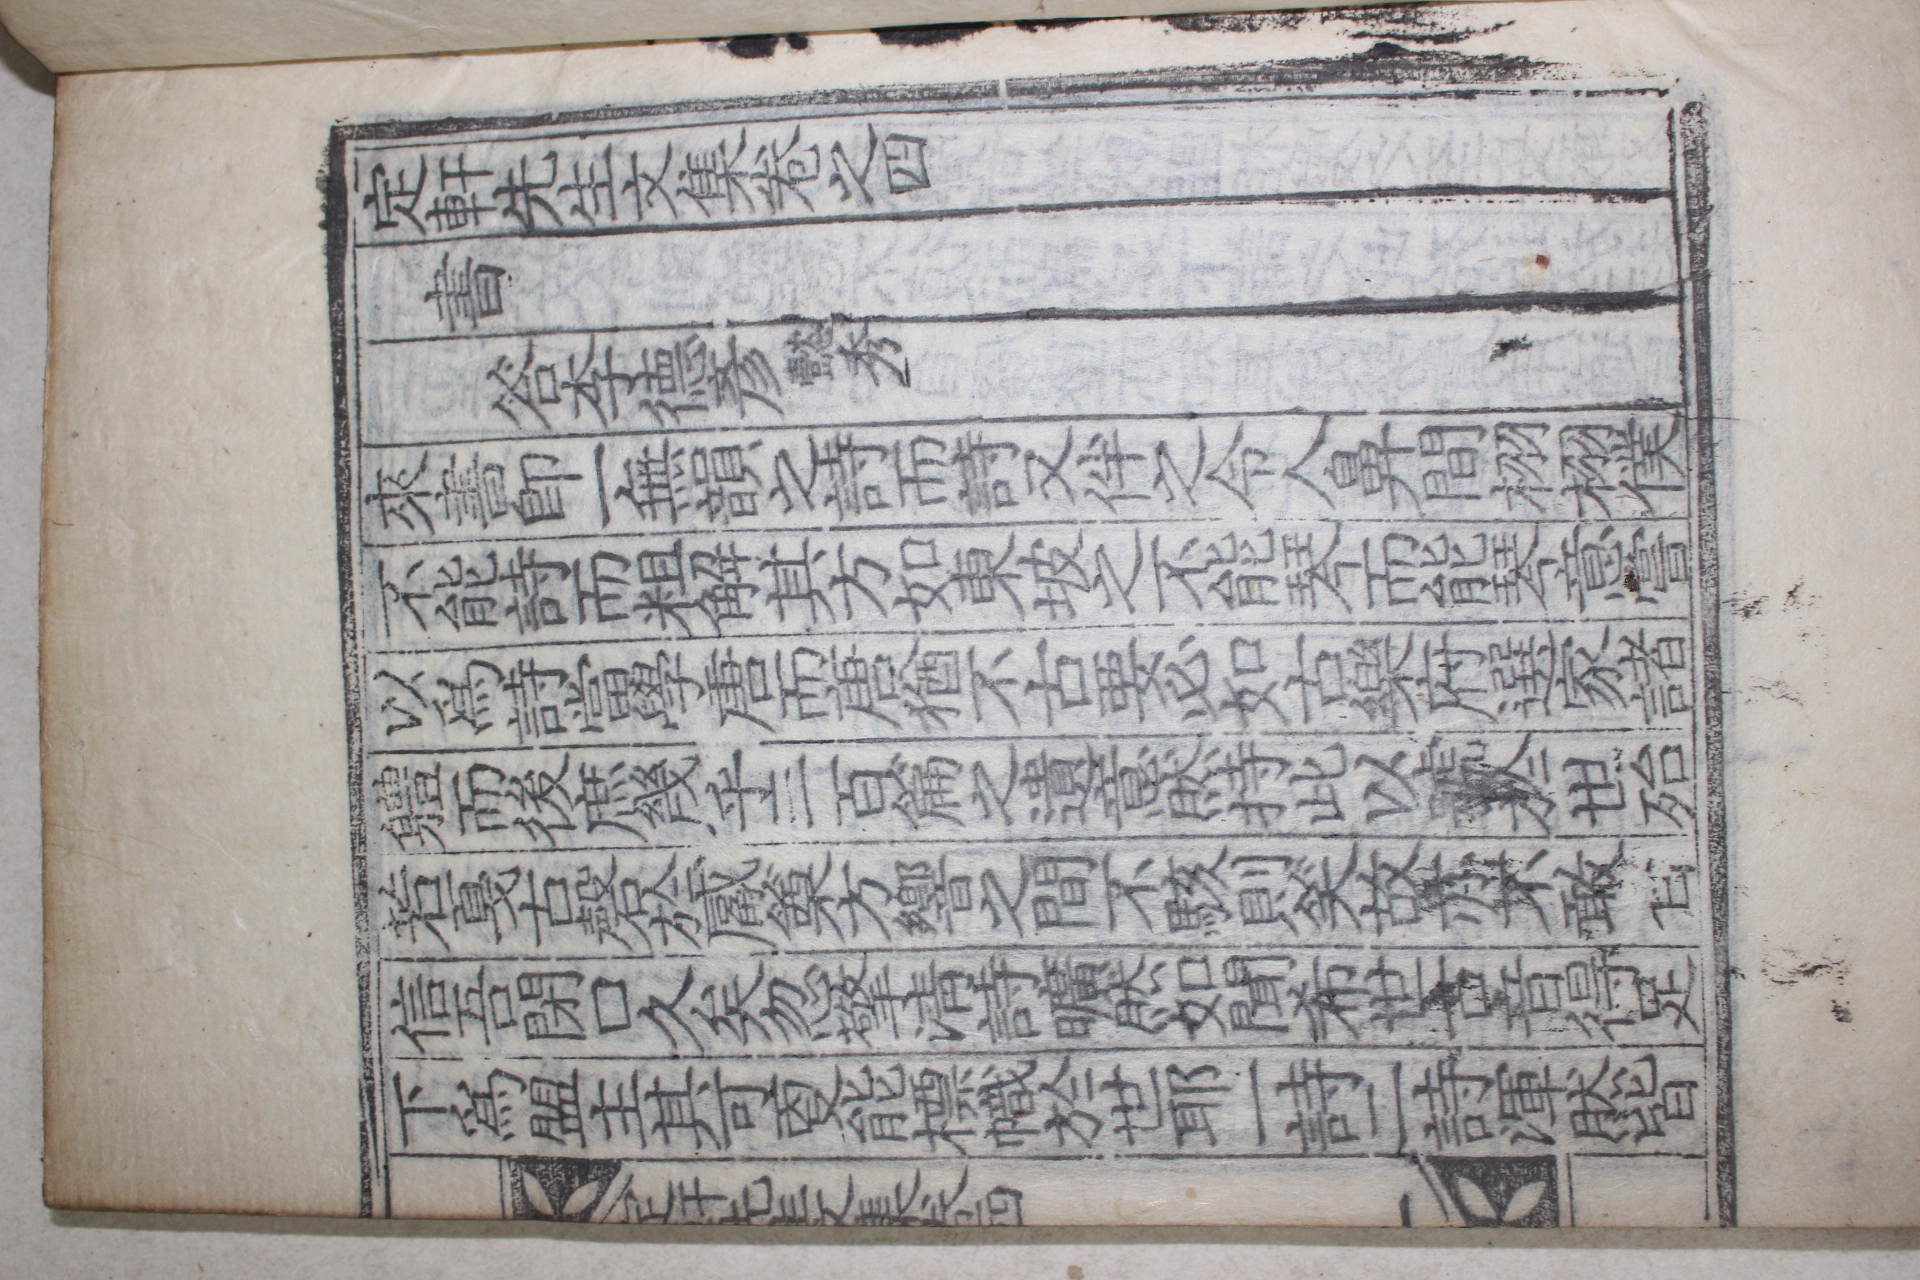 定軒先生文集卷之四
書
答李德彦懿秀
來書卽一無韻之詩而詩又伴之令人鼻間栩栩僕
不能詩而粗解其方如東坡之不能琴而能琴意嘗
以爲詩當學唐而唐猶不古要必如古樂府選家諸
軆而後庶幾乎三百篇之遺意然持此以號於世殆
若戛古磬於觱篥方響之間不駭則笑故亦不敢自
信吾閉口久矣忽擎淸詩曠然如聞希世古音得足
下爲盟主其可更能標幟於世耶一詩二詩渾然皆
定軒先生文集卷四 一